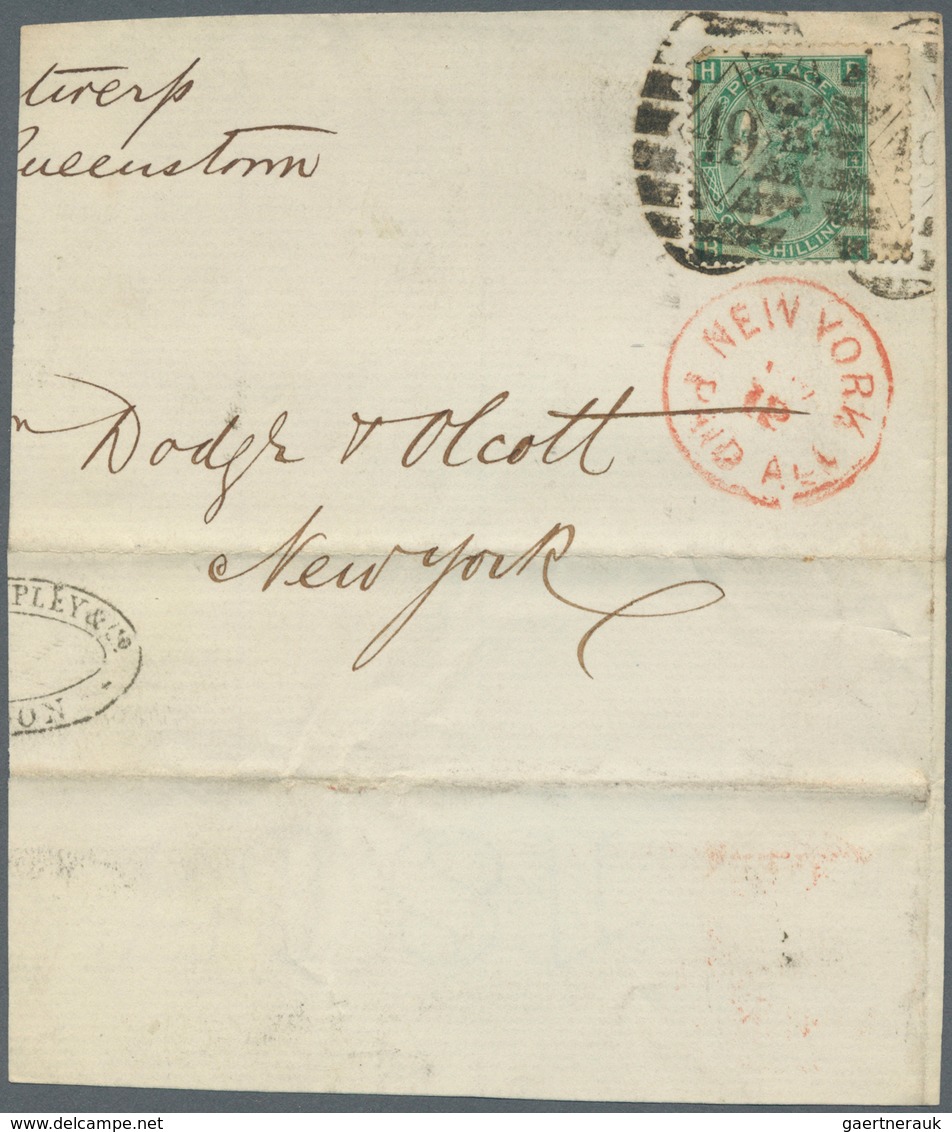 twerp
Queenstown
H
POSTAGE
49
SHILLING
NEW YORK
12
PAID ALL
Dodge & Olcott
New York
PLEY & Co
gaertnerauk
delcampe.net